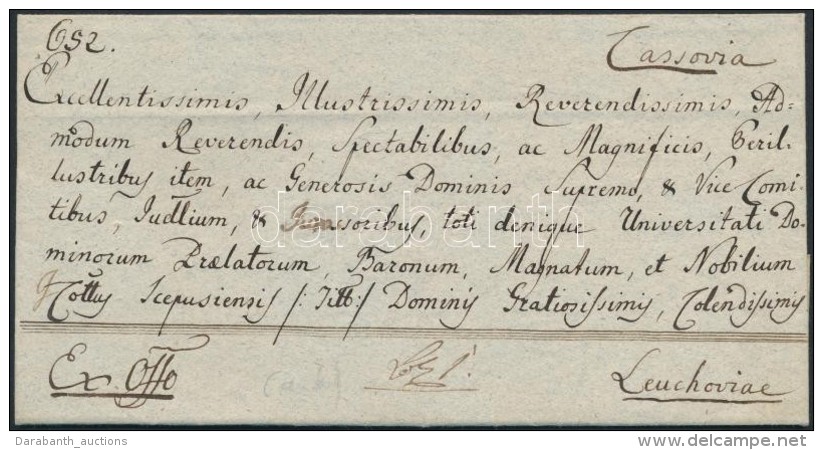 652.
Cassovia
Excellentissimis, Illustrissimis, Reverendissimis, Ad=
modum Reverendis, Spectabilibus, ac Magnificis, Peril=
lustribus item, ac Generosis Dominis Supremo, & Vice Comi=
tibus, Judlium, & Jurassoribus, toti denique Universitati Do=
minorum Prælatorum, Baronum, Magnatum, et Nobilium
Cottus Scepusiensis /: Titt :/ Dominis Gratiosissimis, Colendissimis
Ex Offo
Leuchoviae
darabanth
Darabanth_auctions
http://www.delcampe.net